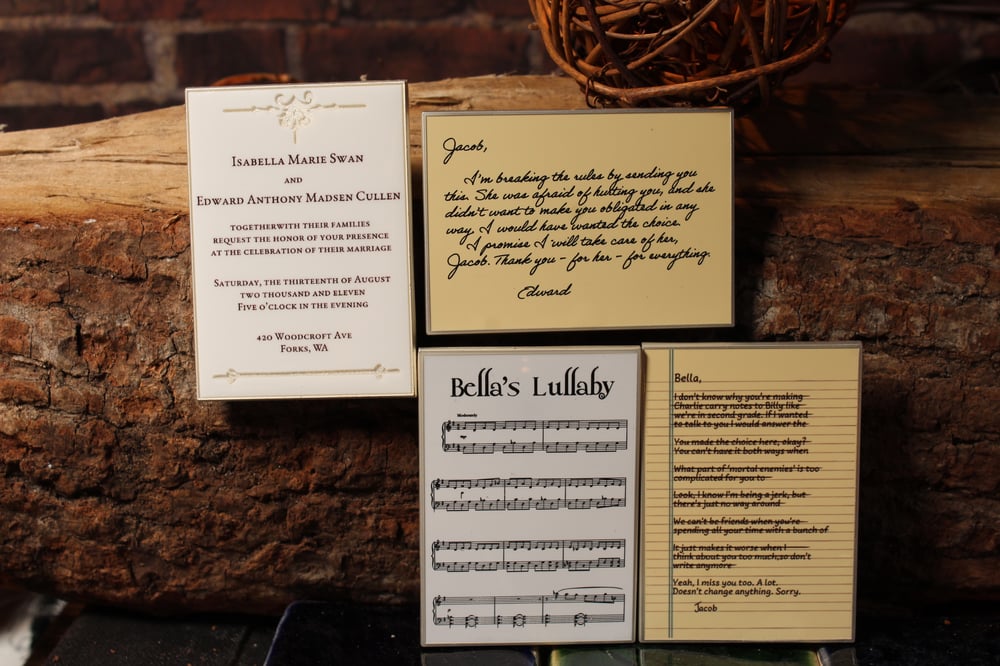 Isabella Marie Swan
and
Edward Anthony Madsen Cullen
togetherwith their families
request the honor of your presence
at the celebration of their marriage
Saturday, the thirteenth of August
two thousand and eleven
Five o'clock in the evening
420 Woodcroft Ave
Forks, WA
Jacob,
I'm breaking the rules by sending you
this. She was afraid of hurting you, and she
didn't want to make you obligated in any
way. I would have wanted the choice.
I promise I will take care of her,
Jacob. Thank you - for her - for everything.
Edward
Bella's Lullaby
Moderately
mp
p
p
Bella,
I don't know why you're making
Charlie carry notes to Billy like
we're in second grade. If I wanted
to talk to you I would answer the
You made the choice here, okay?
You can't have it both ways when
What part of 'mortal enemies' is too
complicated for you to
Look, I know I'm being a jerk, but
there's just no way around
We can't be friends when you're
spending all your time with a bunch of
It just makes it worse when I
think about you too much,so don't
write anymore
Yeah, I miss you too. A lot.
Doesn't change anything. Sorry.
Jacob